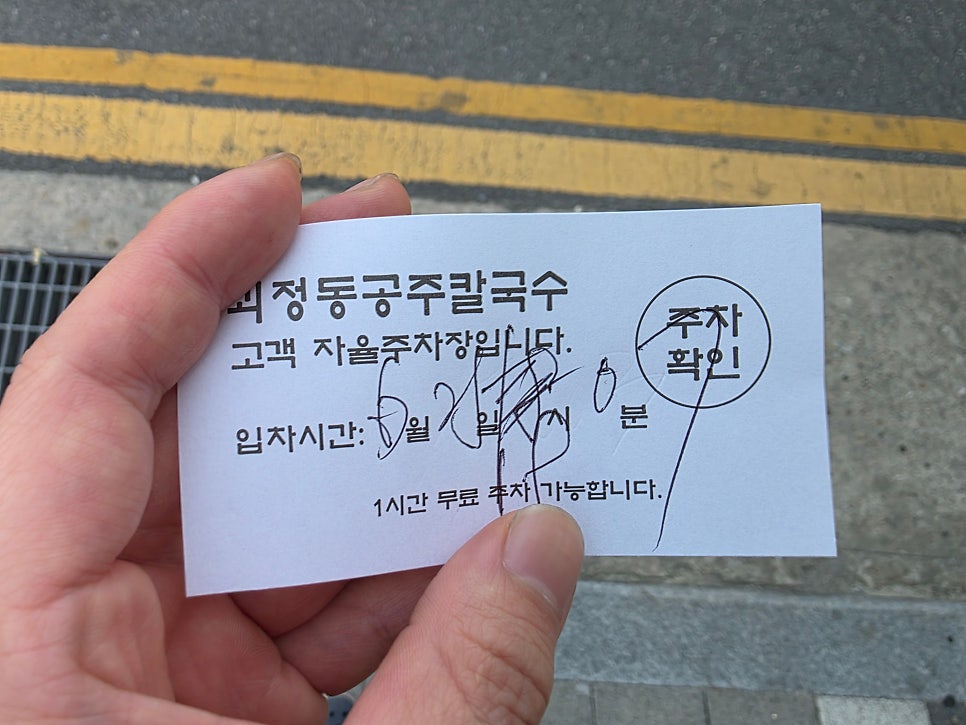 괴정동공주칼국수
고객 자율주차장입니다.
주차
확인
입차시간: 월 일 시 0분
1시간 무료 주차 가능합니다.